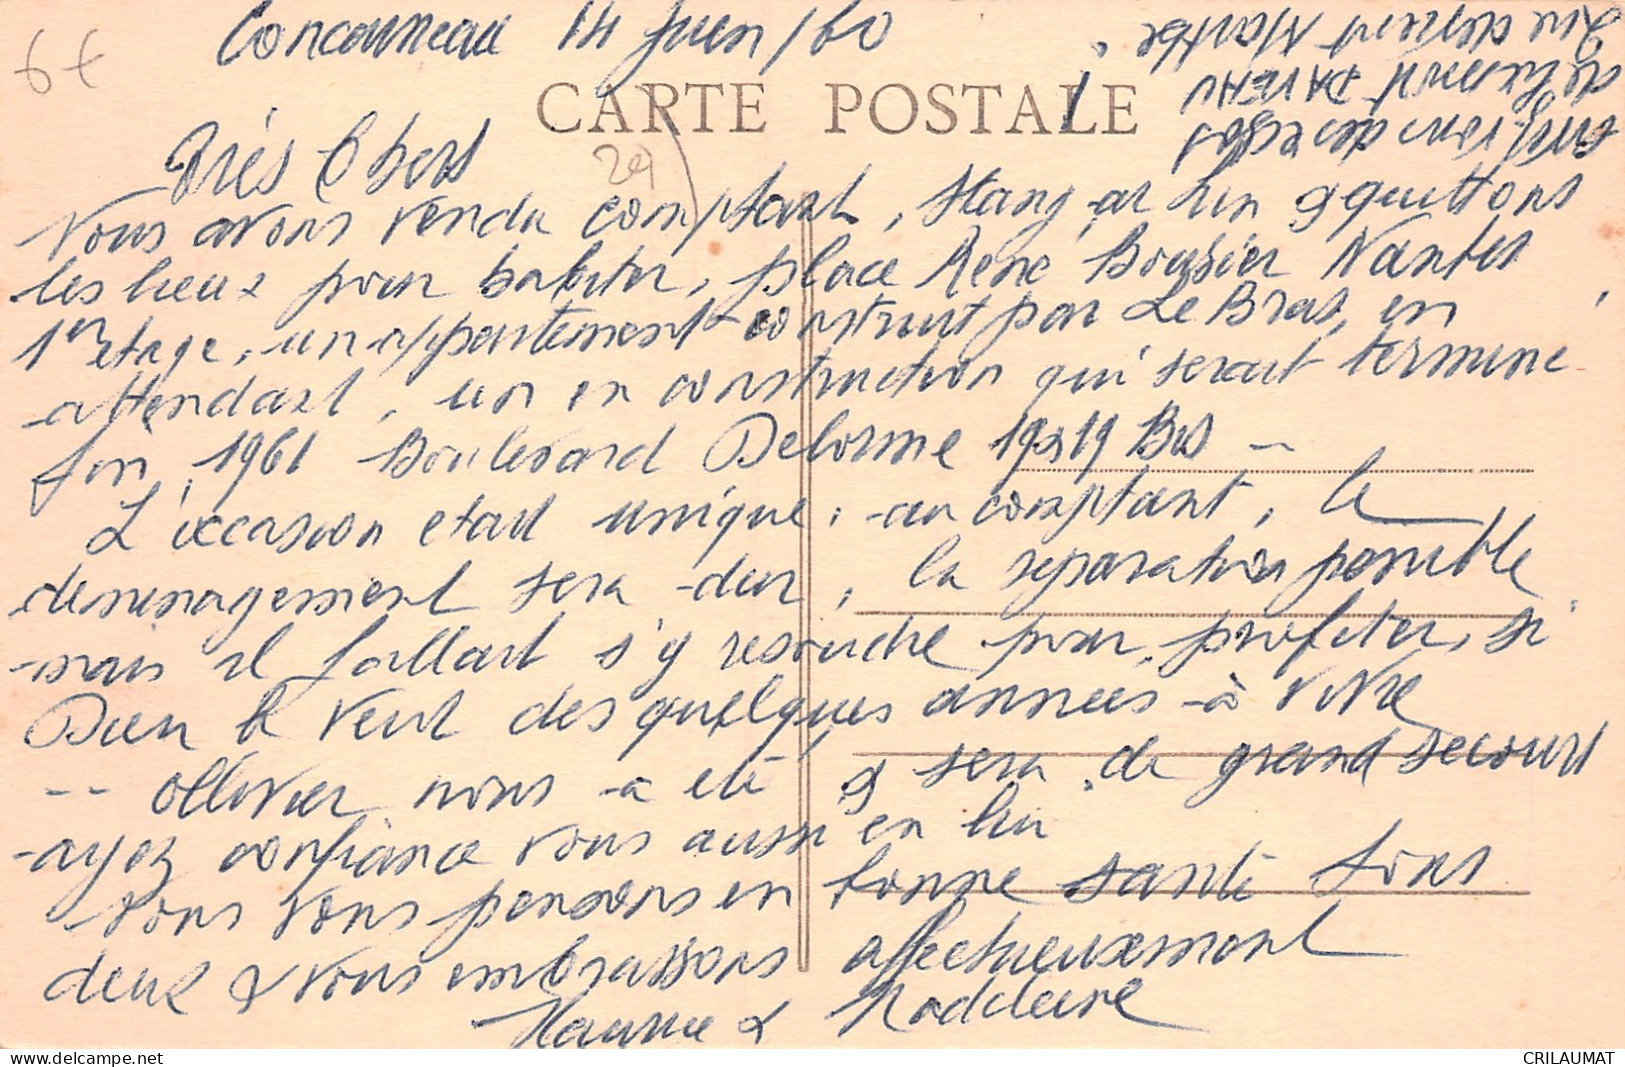 6€
Concarneau 14 Juin/60
CARTE POSTALE
29
Très Chers
Nous avons vendu comptant, Stang ar Lin & quittons
les lieux pour habiter, place René Bouhier Nantes
1er etage, un appartement construit par Le Bras, en
attendant, un en construction qui serait terminé
fin 1961 Boulevard Delorme 19 Bis
L'occasion etait unique, au comptant, le
demenagement sera dur, la separation penible
mais il fallait s'y resoudre pour profiter, si
Dieu le veut des quelques années à vivre
-- Ollivier nous a été & sera de grand secours
ayez confiance vous aussi en lui
Nous vous pensons en bonne santé tous
deux & vous embrassons affectueusement
Maurice & Madeleine
CRILAUMAT